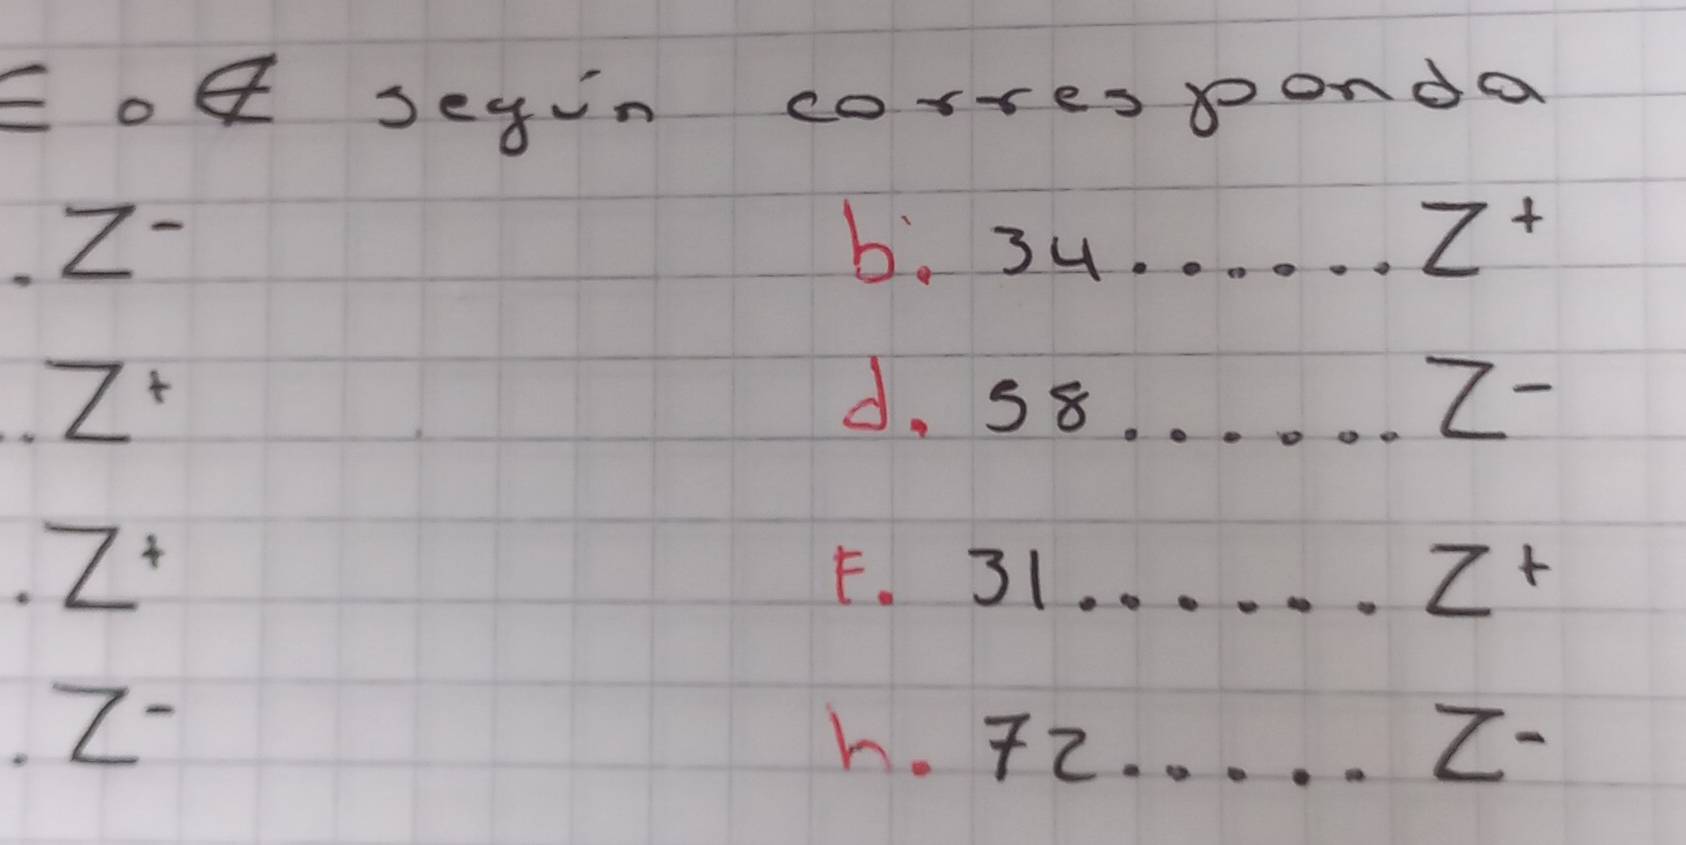 ∈ o ∉ según corresponda
.Z⁻ b. 34......Z⁺
..Z⁺ d. 58......Z⁻
.Z⁺ F. 31......Z⁺
.Z⁻ h. 72.....Z⁻